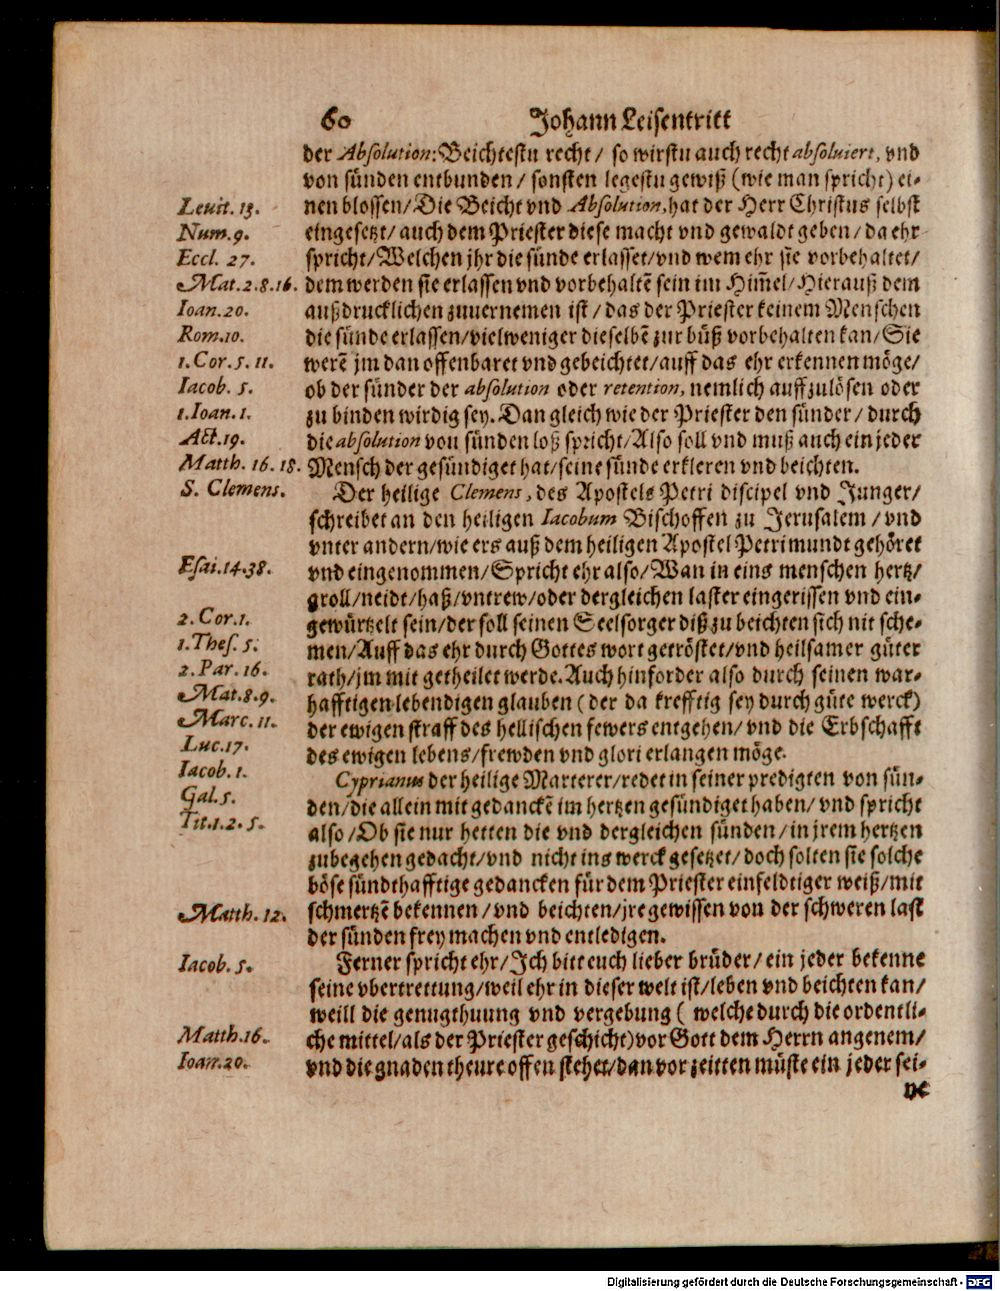 60 Johann Leisentritt
der Absolution: Beichtestu recht / so wirstu auch recht absoluiert, vnd
von sünden entbunden / sonsten legestu gewiß (wie man spricht) ei-
Leuit. 13. nen blossen / Die Beicht vnd Absolution, hat der Herr Christus selbst
Num. 9. eingesetzt / auch dem Priester diese macht vnd gewaldt geben / da ehr
Eccl. 27. spricht / Welchen jhr die sünde erlasset / vnd wem ehr sie vorbehaltet /
Mat. 2. 8. 16. dem werden sie erlassen vnd vorbehaltẽ sein im Him̃el / Hierauß dem
Ioan. 20. außdrucklichen zuuernemen ist / das der Priester keinem Menschen
Rom. 10. die sünde erlassen / vielweniger dieselbẽ zur büß vorbehalten kan / Sie
1. Cor. 5. 11. werẽ jm dan offenbaret vnd gebeichtet / auff das ehr erkennen möge /
Iacob. 5. ob der sünder der absolution oder retention, nemlich auffzulösen oder
1. Ioan. 1. zu binden wirdig sey. Dan gleich wie der Priester den sünder / durch
Act. 19. die absolution von sünden loß spricht / Also soll vnd muß auch ein jeder
Matth. 16. 18. Mensch der gesündiget hat / seine sünde erkleren vnd beichten.
S. Clemens. Der heilige Clemens, des Apostels Petri discipel vnd Junger /
schreibet an den heiligen Iacobum Bischoffen zu Jerusalem / vnd
vnter andern / wie ers auß dem heiligen Apostel Petri mundt gehöret
Esai. 14. 38. vnd eingenommen / Spricht ehr also / Wan in eins menschen hertz /
groll / neidt / haß / vntrew / oder dergleichen laster eingerissen vnd ein-
2. Cor. 1. gewürtzelt sein / der soll seinen Seelsorger diß zu beichten sich nit sche-
1. Thes. 5. men / Auff das ehr durch Gottes wort getröstet / vnd heilsamer güter
2. Par. 16. rath / jm mit getheilet werde. Auch hinforder also durch seinen war-
Mat. 8. 9. hafftigen lebendigen glauben (der da krefftig sey durch güte werck)
Marc. 11. der ewigen straff des hellischen fewers entgehen / vnd die Erbschafft
Luc. 17. des ewigen lebens / frewden vnd glori erlangen möge.
Iacob. 1. Cyprianus der heilige Marterer / redet in seiner predigten von sün-
Gal. 5. den / die allein mit gedanckẽ im hertzen gesündiget haben / vnd spricht
Tit. 1. 2. 5. also / Ob sie nur hetten die vnd dergleichen sünden / in jrem hertzen
zubegehen gedacht / vnd nicht ins werck gesetzet / doch solten sie solche
böse sündthafftige gedancken für dem Priester einfeldtiger weiß / mit
Matth. 12. schmertzẽ bekennen / vnd beichten / jre gewissen von der schweren last
der sünden frey machen vnd entledigen.
Iacob. 5. Ferner spricht ehr / Ich bitt euch lieber brüder / ein jeder bekenne
seine vbertrettung / weil ehr in dieser welt ist / leben vnd beichten kan /
weill die genugthuung vnd vergebung ( welche durch die ordentli-
Matth. 16. che mittel / als der Priester geschicht) vor Gott dem Herrn angenem /
Ioan. 20. vnd die gnaden theure offen stehet / dan vor zeitten müste ein jeder sei-
ne
Digitalisierung gefördert durch die Deutsche Forschungsgemeinschaft - DFG